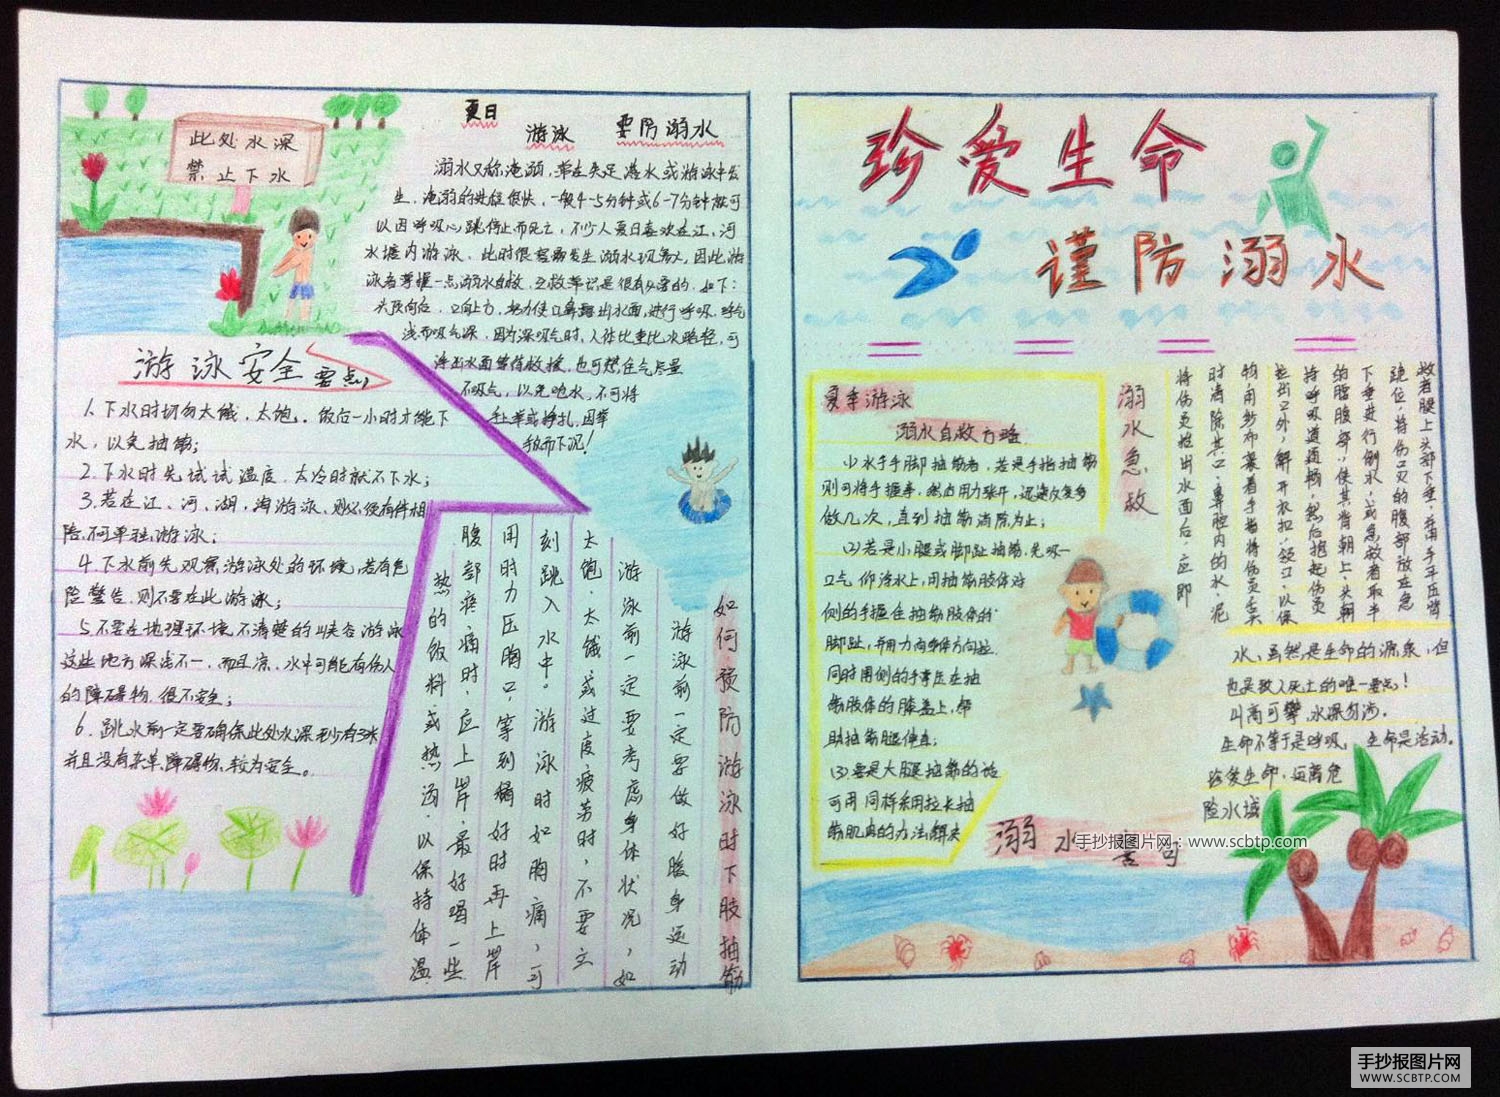 此处水深
禁止下水
夏日
游泳
要防溺水
溺水又称淹溺，常在失足落水或游泳中发
生，淹溺的进程很快，一般4-5分钟或6-7分钟就可
以因呼吸心跳停止而死亡，不少人夏日喜欢在江，河
水塘内游泳，此时很容易发生溺水现象，因此游
泳者掌握一点溺水自救，互救常识是很有必要的，如下：
头顶向后，口向上方，努力使口鼻露出水面，进行呼吸，呼气
浅而吸气深，因为深吸气时，人体比重比水略轻，可
浮出水面等待救援，也可憋住气尽量
不吸气，以免呛水，不可将
手上举或挣扎，因举
手反而下沉！
游泳安全要点，
1、下水时切勿太饿，太饱。饭后一小时才能下
水，以免抽筋；
2、下水时先试试温度，太冷时就不下水；
3、若在江、河、湖，海游泳，则必须有伴相
陪，不可单独游泳；
4、下水前先观察游泳处的环境，若有危
险警告，则不要在此游泳；
5、不要在地理环境不清楚的峡谷游泳
这些地方深浅不一，而且凉，水中可能有伤人
的障碍物，很不安全；
6、跳水前一定要确保此处水深至少有3米
并且没有杂草、障碍物，较为安全。
如何预防游泳时下肢抽筋
游泳前一定要做好暖身运动
游泳前一定要考虑身体状况，如
太饱、太饿或过度疲劳时，不要立
刻跳入水中。游泳时如胸痛，可
用时力压胸口，等到稍好时再上岸
腹部疼痛时，应上岸，最好喝一些
热的饮料或热汤，以保持体温
珍爱生命
谨防溺水
夏季游泳
溺水自救方略
(1)水于手脚抽筋者，若是手指抽筋
则可将手握拳，然后用力张开，迅速反复多
做几次，直到抽筋消除为止；
(2)若是小腿或脚趾抽筋，先吸一
口气仰浮水上，用抽筋肢体对
侧的手握住抽筋肢体的
脚趾，并用力向身体方向拉
同时用侧的手掌压在抽
筋肢体的膝盖上，帮
助抽筋腿伸直；
(3)要是大腿抽筋的话
可用同样采用拉长抽
筋肌肉的办法解决
溺水急救
将伤员抬出水面后，应即
时清除其口、鼻腔内的水、泥
物用纱布裹着手指将伤员舌头
拉出口外，解开衣扣、领口，以保
持呼吸道通畅，然后抱起伤员
的腰腹部，使其背朝上、头朝
下垂进行倒水，或急救者取半
跪位，将伤员的腹部放在急
救者腿上头部下垂，并用手平压背
水，虽然是生命的源泉，但
也是致人死亡的唯一要点！
山高可攀，水深勿涉。
生命不等于是呼吸，生命是活动。
珍爱生命，远离危
险水域
溺水害句
手抄报图片网：www.scbtp.com
手抄报图片网
WWW.SCBTP.COM